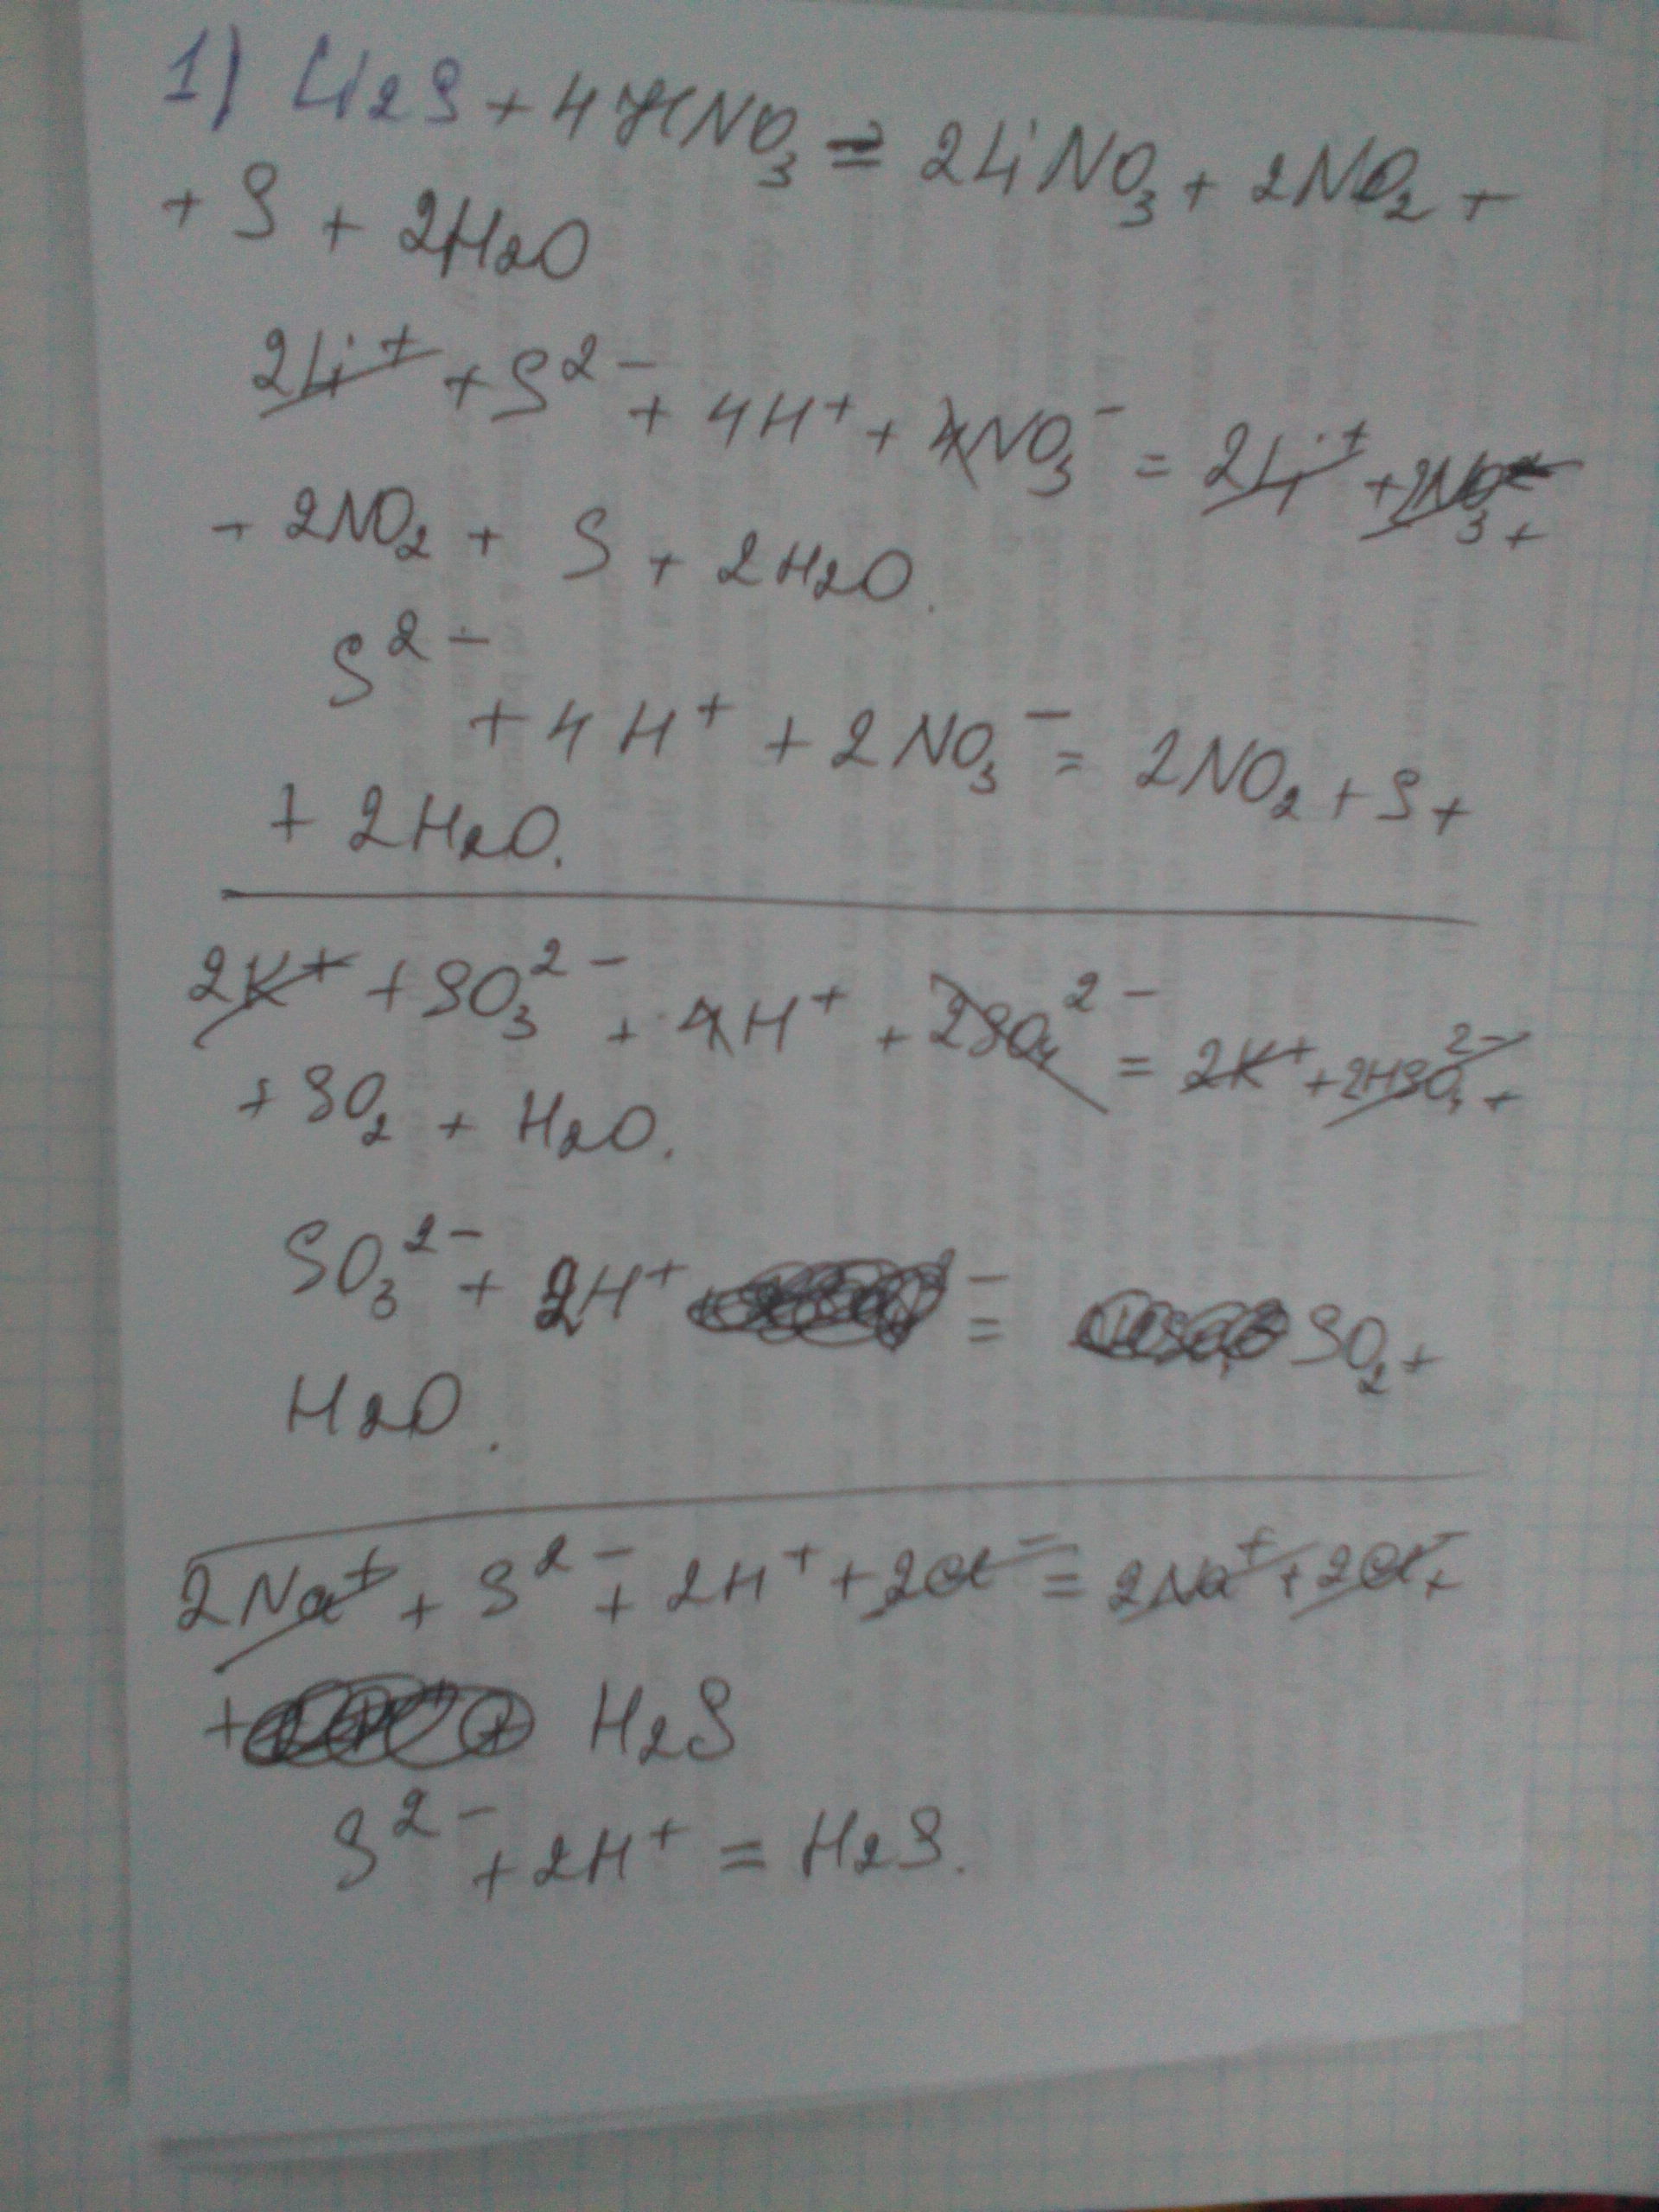 1) Li2S + 4HNO3 = 2LiNO3 + 2NO2 +
+ S + 2H2O
2Li+ + S2- + 4H+ + 4NO3- = 2Li+ + 2NO3 +
+ 2NO2 + S + 2H2O.
S2- + 4H+ + 2NO3- = 2NO2 + S +
+ 2H2O.
2K+ + SO3 2- + 4H+ + 2SO4 2- = 2K+ + 2HSO4 2- +
+ SO2 + H2O.
SO3 2- + 2H+ = SO2 +
H2O.
2Na+ + S2- + 2H+ + 2Cl- = 2Na+ + 2Cl- +
+ H2S
S2- + 2H+ = H2S.